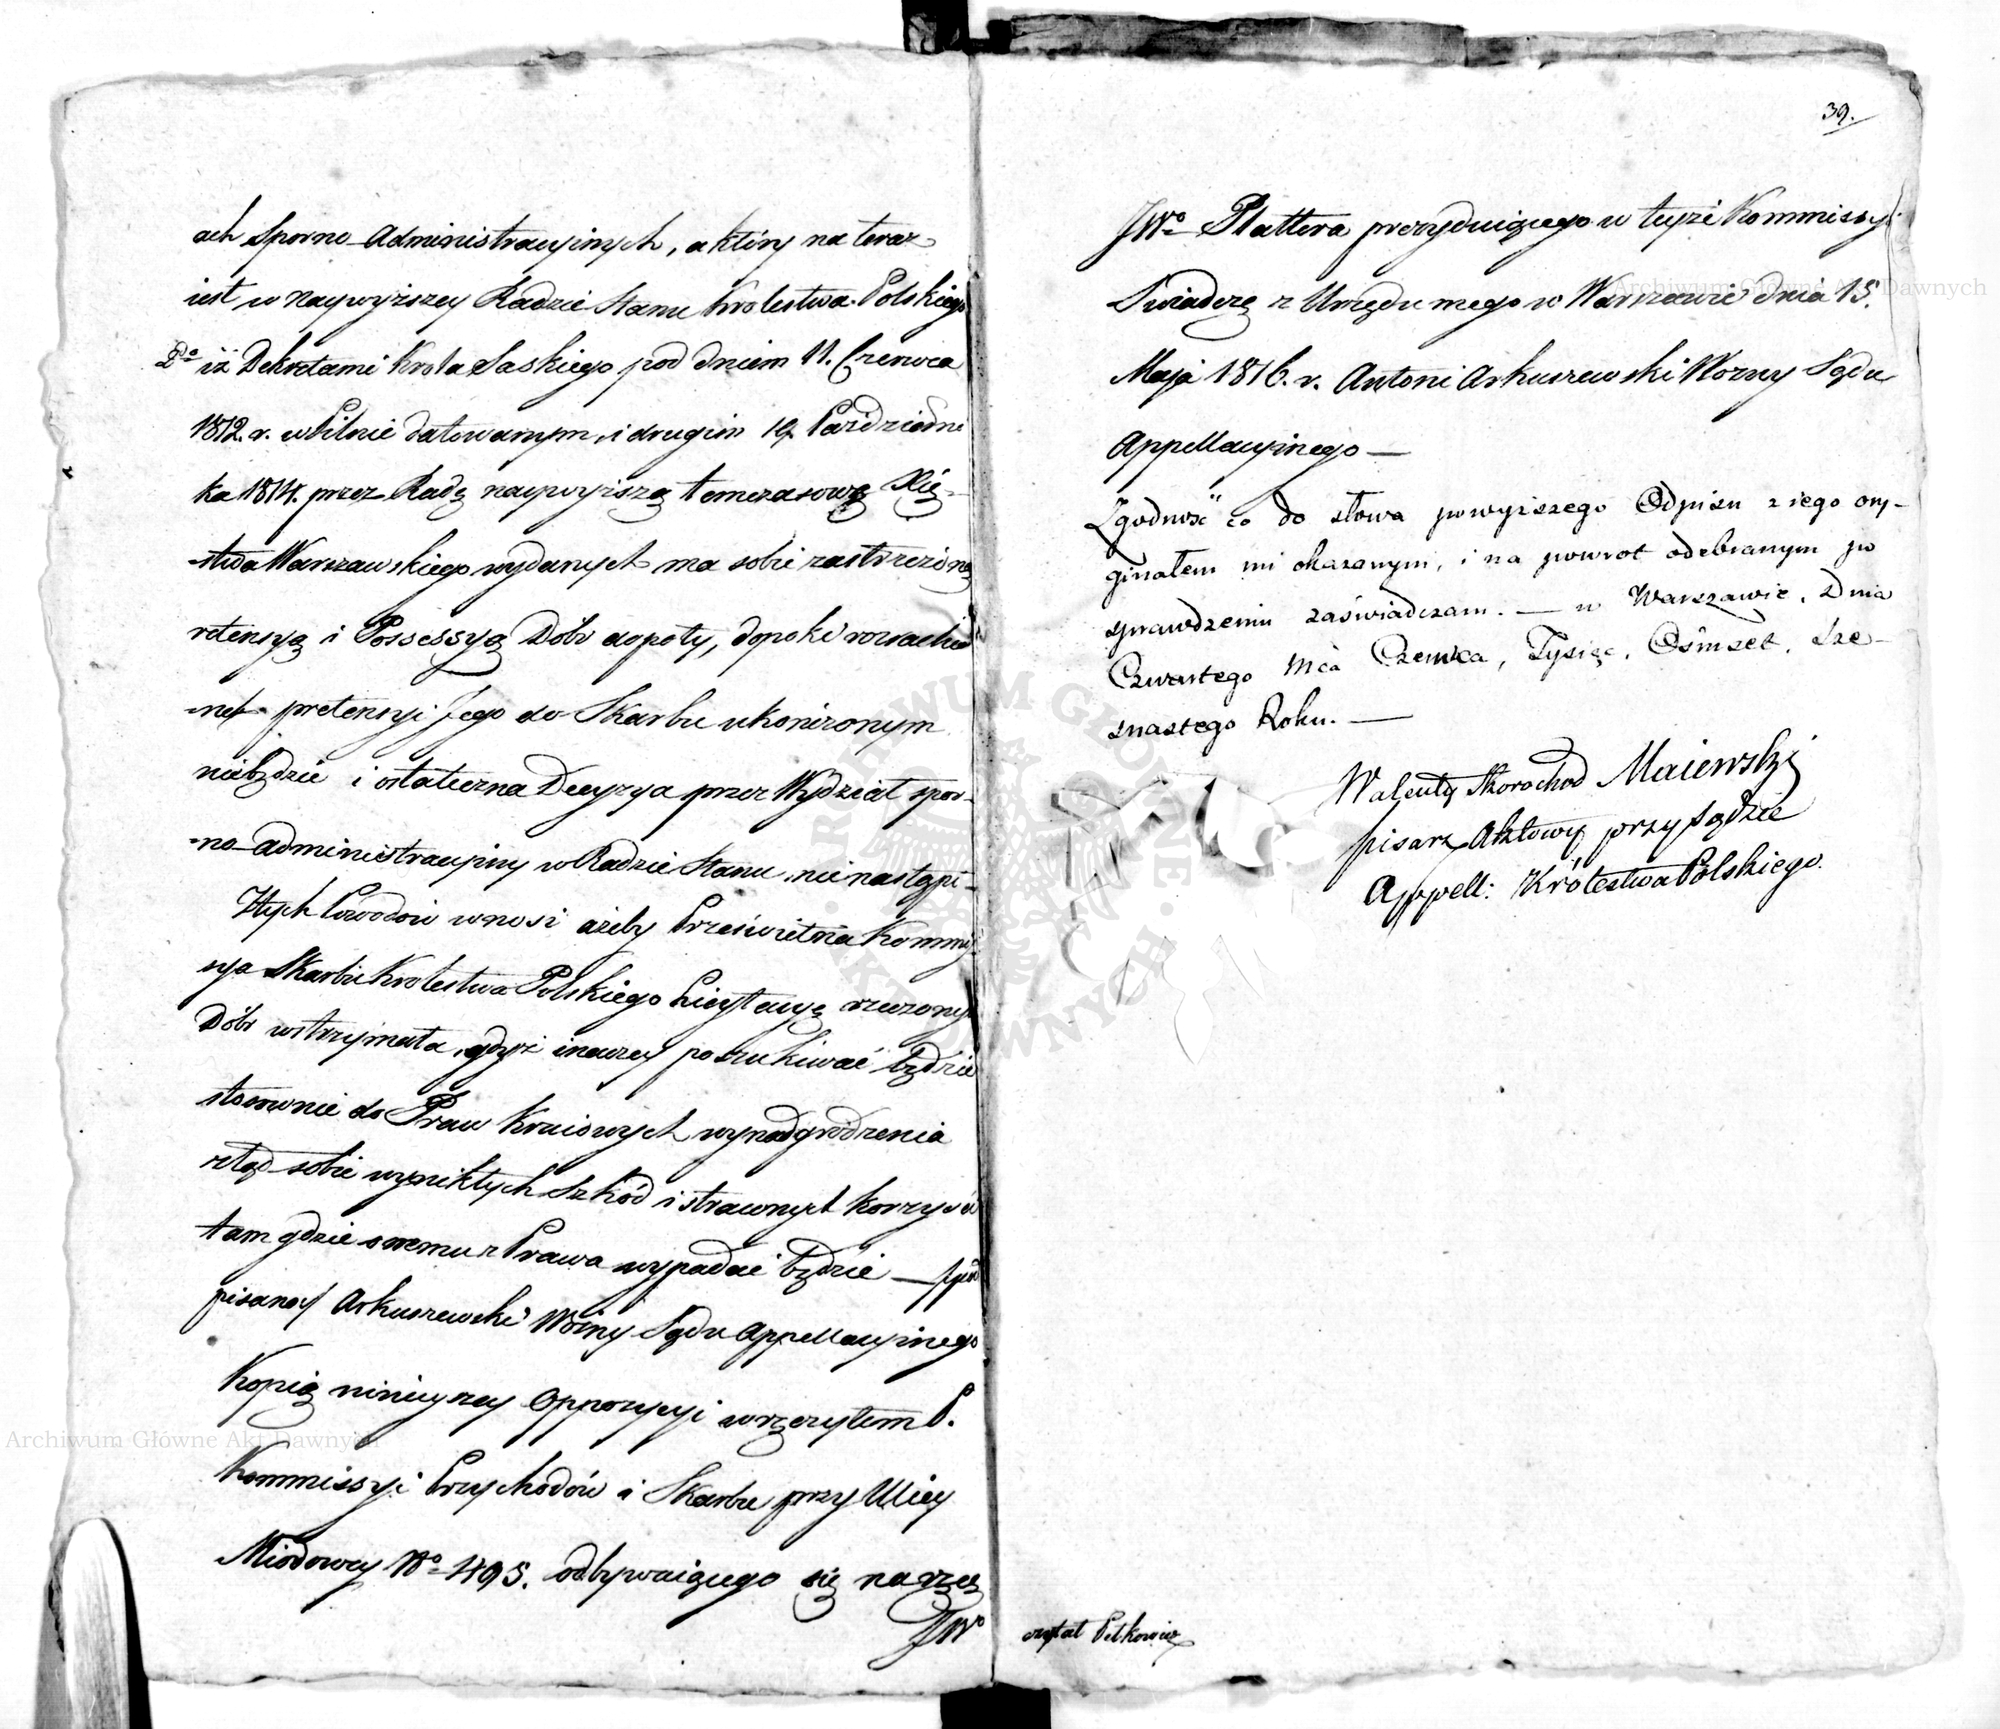 ach Sporno-Administracyjnych, a który na teraz
iest w naywyższey Radzie Stanu Krolestwa Polskiego
2do iż Dekretami Krola Saskiego pod dniem 11. Czerwca
1812. r. w Pilnie datowanym, i drugim 19. Paździedni
ka 1814. przez Radę naywyiszą temczasową Xię-
-stwa Warszawskiego wydanych ma sobie zastrzeżoną
retensyą i Possessyą Dóbr dopoty, dopoki rozrachu
-nek pretensyi Jego do Skarbu ukończonym
niebędzie i ostateczna Decyzya przez Wydział spor-
-no-administracyiny w Radzie Stanu nie nastąpi-
Ztych Powodów wnosi ażeby Prześwietna Kommis
sya Skarbu Krolestwa Polskiego Licytacyą rzeczonych
Dóbr wstrzymała, gdyż inaczey poszukiwać będzie
stosownie do Praw Kraiowych wynadgrodzenia
ztąd sobie wynikłych Szkód i straconych korzyści
tam gdzie z Prawa wypadać będzie — /pod
pisano/ Arkuszewski Woźny Sądu Appellacyinego
Kopią ninieyszey Oppozycyi wręczyłem P.
Kommissyi Przychodów i Skarbu przy Ulicy
Miodowey No 495. odbywaiącego się na ręce
JWo
39.
JWo Plattera prezyduiącego w teyże Kommissyi
Swiadczę z Urzędu mego w Warszawie dnia 15.
Maja 1816. r. Antoni Arkuszewski Wozny Sądu
Appellacyinego —
Zgodność co do słowa powyższego Odpisu z iego ory-
ginałem mi okazanym, i na powrot odebranym po
sprawdzeniu zaświadczam. — w Warszawie, Dnia
Czwartego Mca Czerwca, Tysiąc, Ośmset, Sze-
snastego Roku. —
Walenty Skorochod Maiewski
pisarz Aktowy przy Sądzie
Appell: Królestwa Polskiego.
czytał Petkowicz
Archiwum Główne Akt Dawnych
Archiwum Główne Akt Dawnych
ARCHIWUM GŁÓWNE AKT DAWNYCH